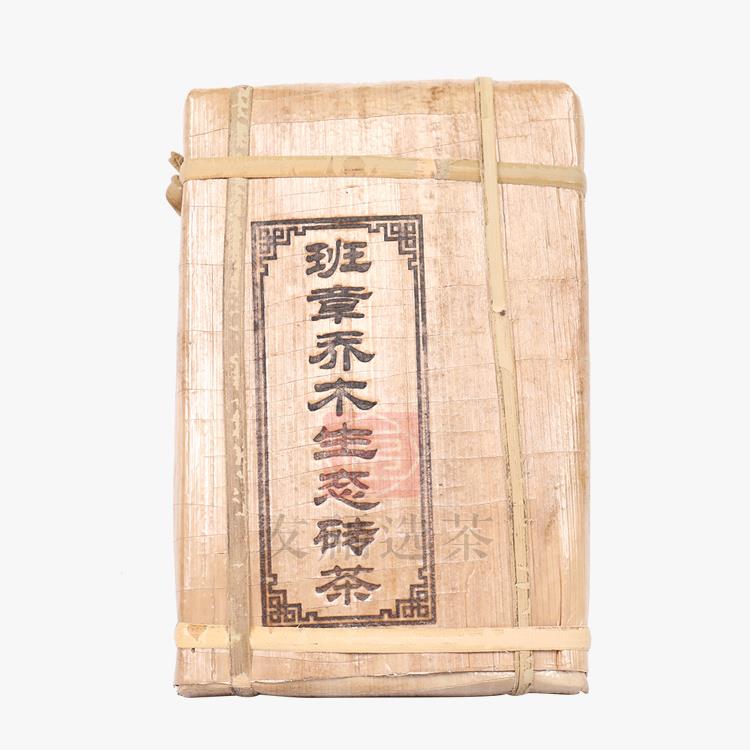 班章乔木生态砖茶
友品选茶